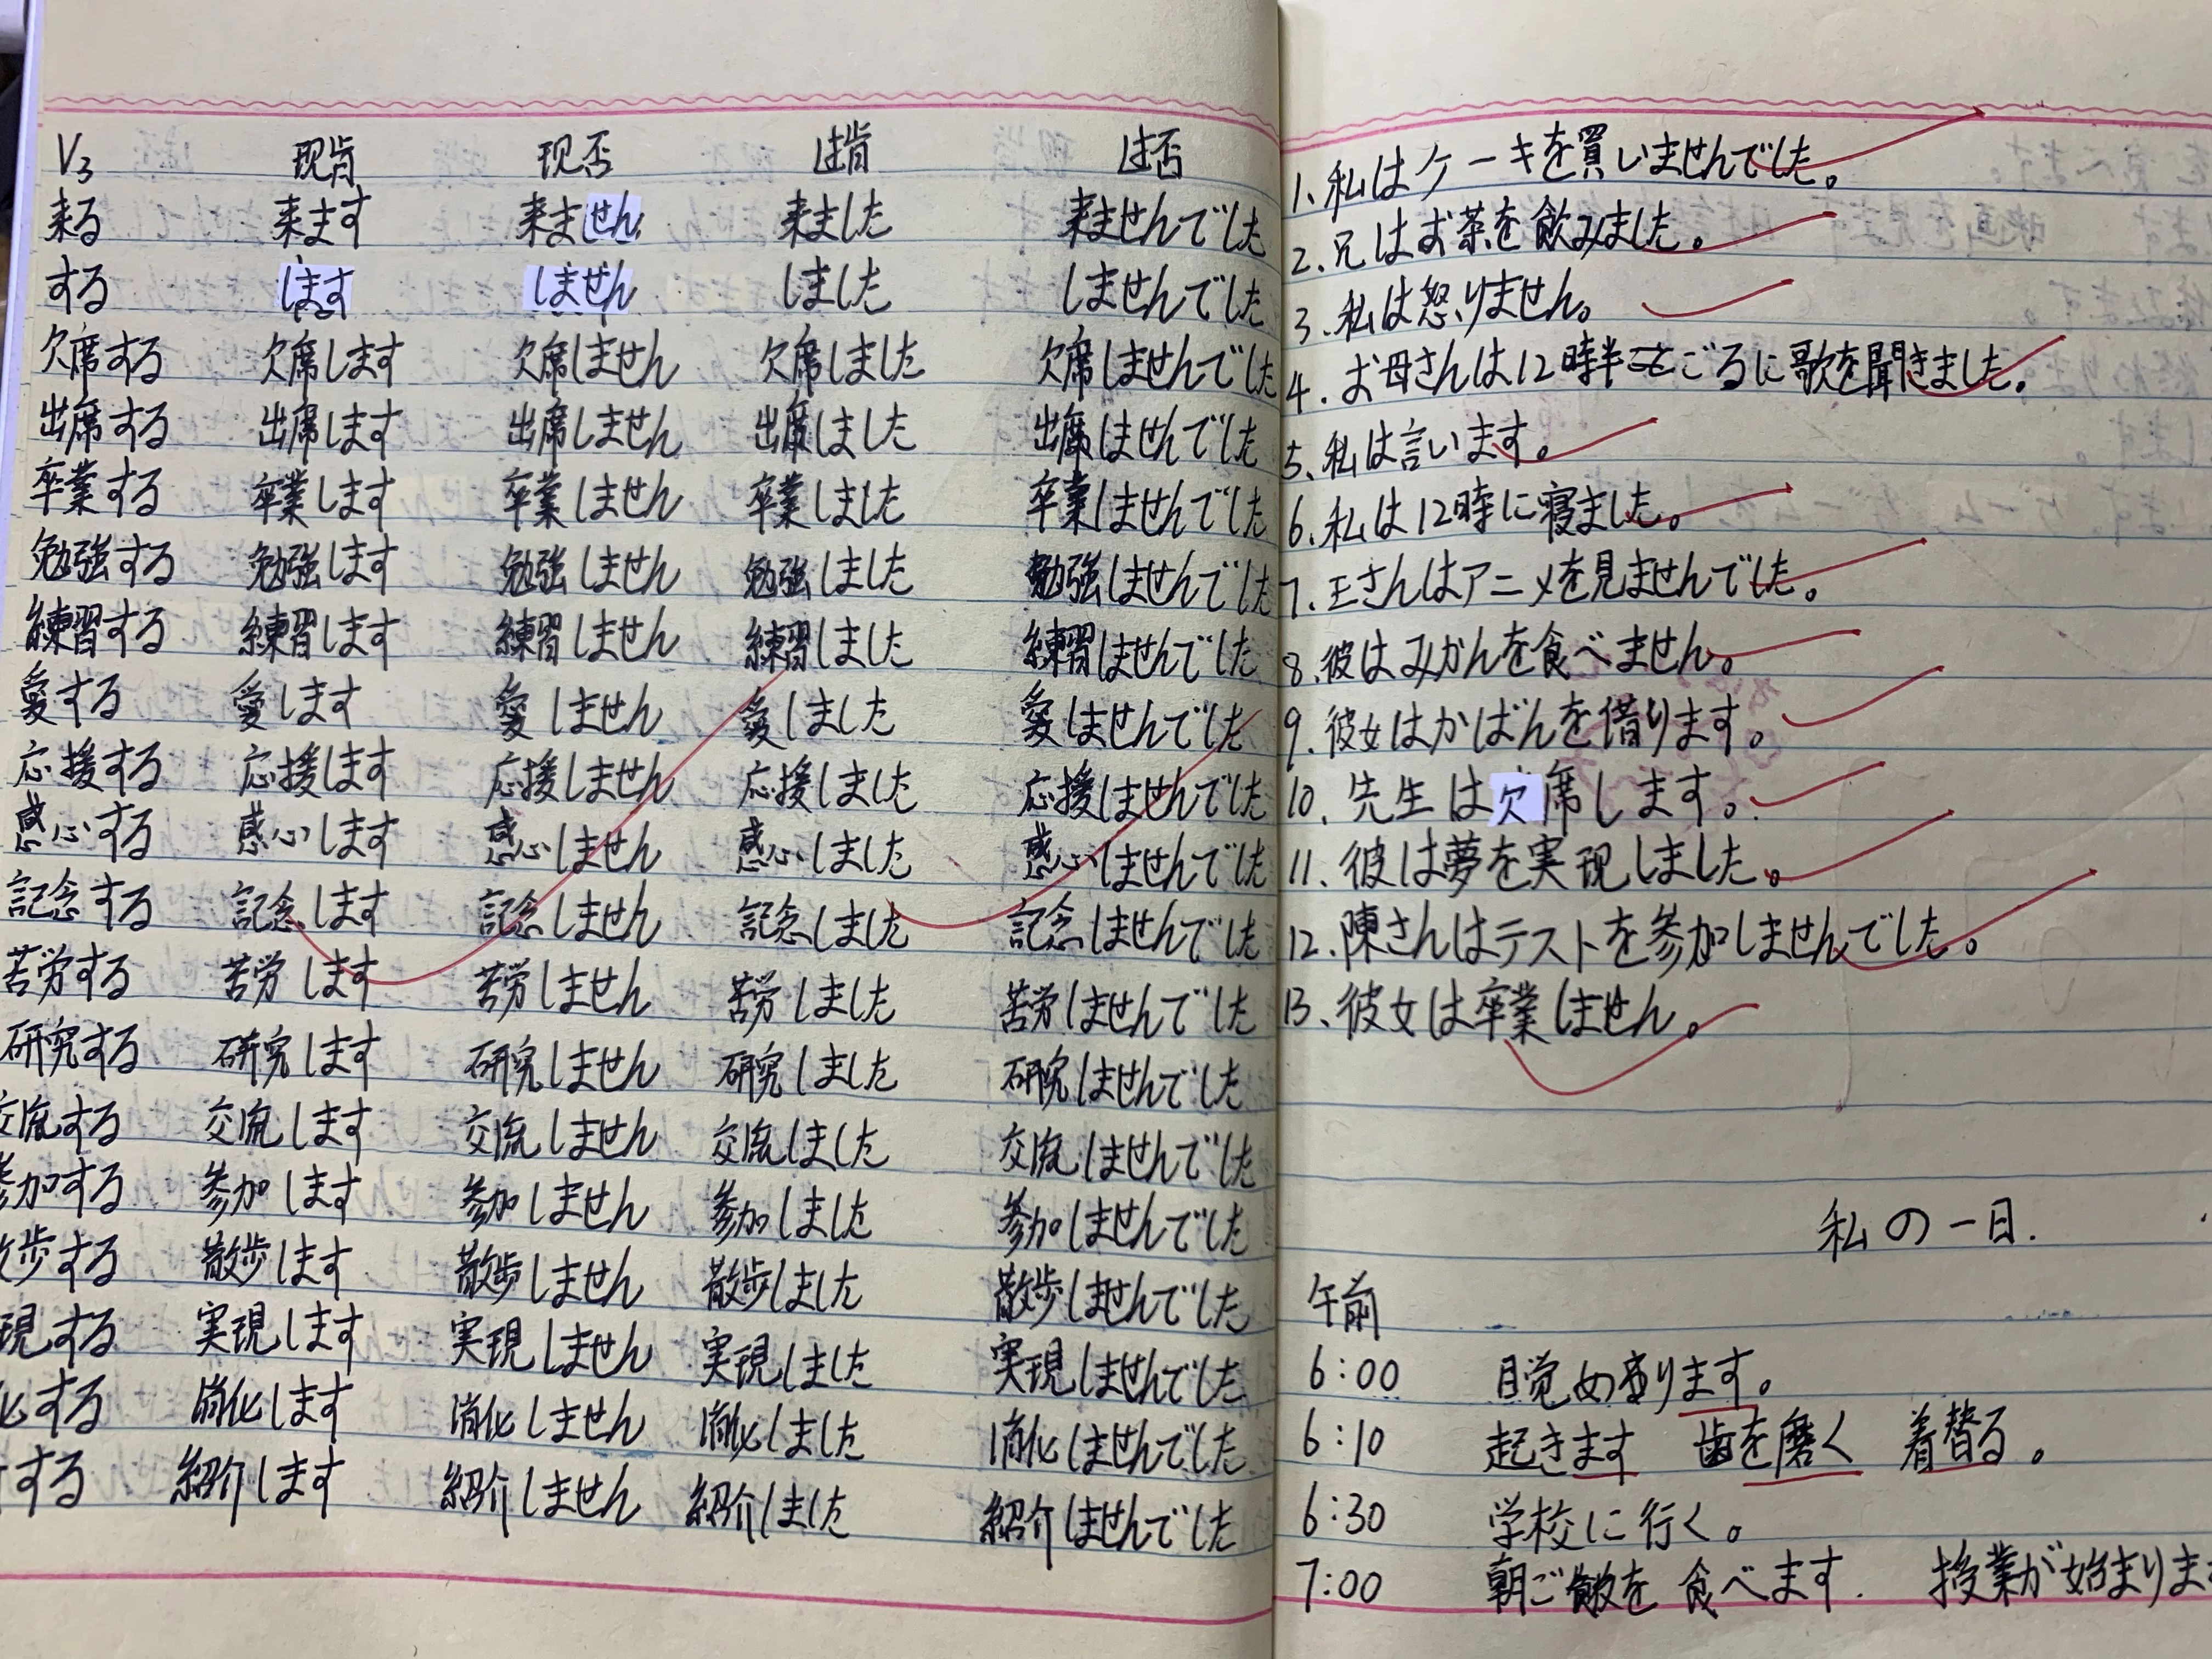 V3 现肯 现否 过肯 过否
来る 来ます 来ません 来ました 来ませんでした
する します しません しました しませんでした
欠席する 欠席します 欠席しません 欠席しました 欠席しませんでした
出席する 出席します 出席しません 出席しました 出席しませんでした
卒業する 卒業します 卒業しません 卒業しました 卒業しませんでした
勉強する 勉強します 勉強しません 勉強しました 勉強しませんでした
練習する 練習します 練習しません 練習しました 練習しませんでした
愛する 愛します 愛しません 愛しました 愛しませんでした
応援する 応援します 応援しません 応援しました 応援しませんでした
感心する 感心します 感心しません 感心しました 感心しませんでした
記念する 記念します 記念しません 記念しました 記念しませんでした
苦労する 苦労します 苦労しません 苦労しました 苦労しませんでした
研究する 研究します 研究しません 研究しました 研究しませんでした
交流する 交流します 交流しません 交流しました 交流しませんでした
参加する 参加します 参加しません 参加しました 参加しませんでした
散歩する 散歩します 散歩しません 散歩しました 散歩しませんでした
現する 実現します 実現しません 実現しました 実現しませんでした
化する 消化します 消化しません 消化しました 消化しませんでした
する 紹介します 紹介しません 紹介しました 紹介しませんでした
1、私はケーキを買いませんでした。
2、兄はお茶を飲みました。
3、私は怒りません。
4、お母さんは12時半ごろに歌を聞きました。
5、私は言います。
6、私は12時に寝ました。
7、王さんはアニメを見ませんでした。
8、彼はみかんを食べません。
9、彼女はかばんを借ります。
10、先生は欠席します。
11、彼は夢を実現しました。
12、陳さんはテストを参加しませんでした。
13、彼女は卒業しません。
私の一日.
午前
6:00 目覚め ります。
6:10 起きます 歯を磨く 着替る。
6:30 学校に行く。
7:00 朝ご飯を 食べます. 授業が始まりま